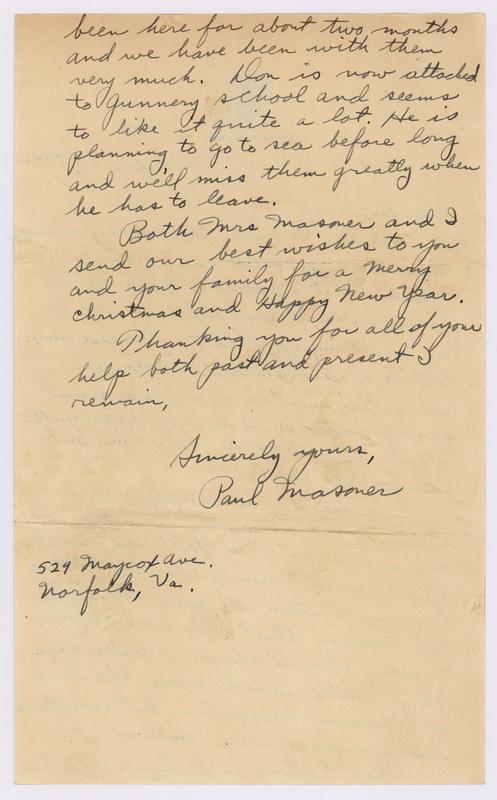 been here for about two months
and we have been with them
very much. Don is now attached
to gunnery school and seems
to like it quite a lot. He is
planning to go to sea before long
and we'll miss them greatly when
he has to leave.
Both Mrs Masoner and I
send our best wishes to you
and your family for a merry
christmas and Happy New Year.
Thanking you for all of your
help both past and present I
remain,
Sincerely yours,
Paul Masoner
529 Maycox Ave.
Norfolk, Va.